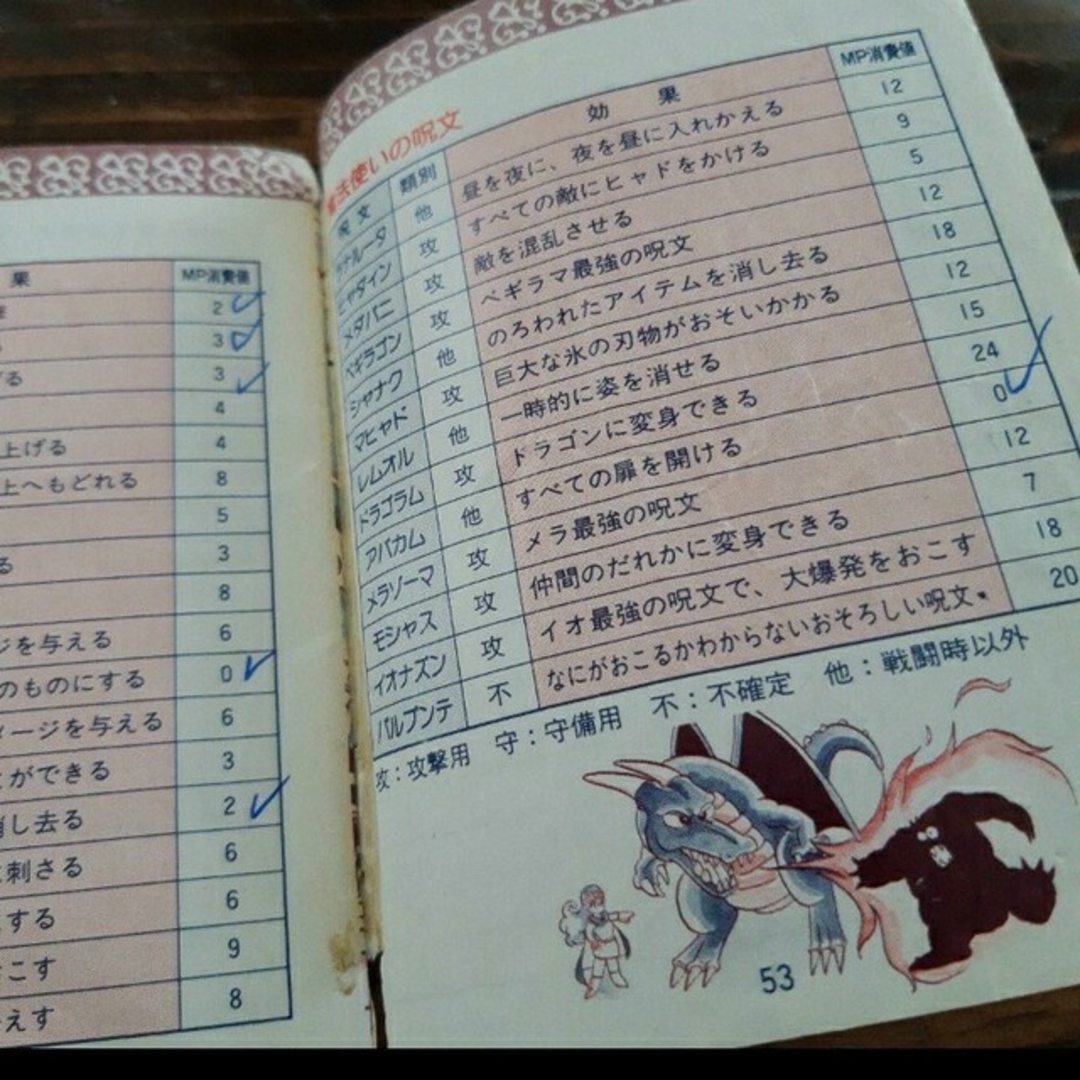 果 MP消費値
2
3
る 3
4
上げる 4
上へもどれる 8
5
る 3
8
ジを与える 6
のものにする 0
メージを与える 6
とができる 3
消し去る 2
に刺さる 6
する 6
こす 9
えす 8
使いの呪文
呪文 類別 効果 MP消費値
ラナルータ 他 昼を夜に、夜を昼に入れかえる 12
ヒャダイン 攻 すべての敵にヒャドをかける 9
メダパニ 攻 敵を混乱させる 5
ベギラゴン 攻 ベギラマ最強の呪文 12
シャナク 他 のろわれたアイテムを消し去る 18
マヒャド 攻 巨大な氷の刃物がおそいかかる 12
レムオル 他 一時的に姿を消せる 15
ドラゴラム 攻 ドラゴンに変身できる 24
アバカム 他 すべての扉を開ける 0
メラゾーマ 攻 メラ最強の呪文 12
モシャス 攻 仲間のだれかに変身できる 7
イオナズン 攻 イオ最強の呪文で、大爆発をおこす 18
パルプンテ 不 なにがおこるかわからないおそろしい呪文。 20
攻：攻撃用 守：守備用 不：不確定 他：戦闘時以外
53